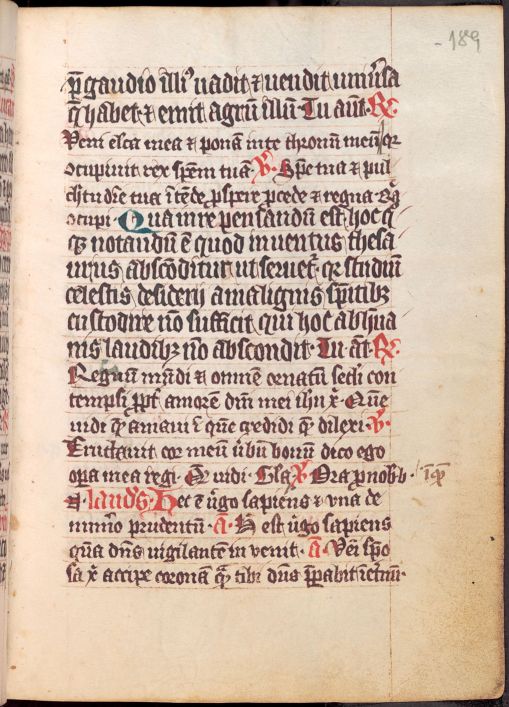 189
p̄ gaudio illiꝰ uadit ⁊ uendit uniũsa
q̄ habet ⁊ emit agrū illū· Tu aūt· ℟
Veni elc̄a mea ⁊ ponā in te thronū meū qr
ɔcupiuit rex spēm tuā ℣· Spē tua ⁊ pul
chͥtudīe tua ītēde ꝓspere ꝓcede ⁊ regna·
ɔcupi· Qua in re pensandū est hoc q
notandū ē quod inuentus thesa
urus absconditur ut seruetᷣ· qr studiū
celestis desiderij a malignis sp̄itibꝫ
custodire nō sufficit qui hoc ab hūa
nis laudibꝫ nō abscondit· Tu āt· ℟
Regnū mūdi ⁊ omnē ornatū secli con
tempsi ꝓpt̄ amorē dn̄i mei ihū x̄· Quē
uidi quē amaui ī quē credidi quē dilexi· ℣·
Eructauit cor meū ūbū bonū dico ego
opa mea regi· Quē uidi· Gl̄a ℣· Ora ꝓ nob b·
laudꝰ Hec ē ūgo sapiens ⁊ vna de
numō prudentū· a· H̄ est ūgo sapiens
quā dn̄s uigilantē inuenit· a· Vēi spō
sa x̄ accipe coronā quā tibi dn̄s p̄parabit ī et̄nū·